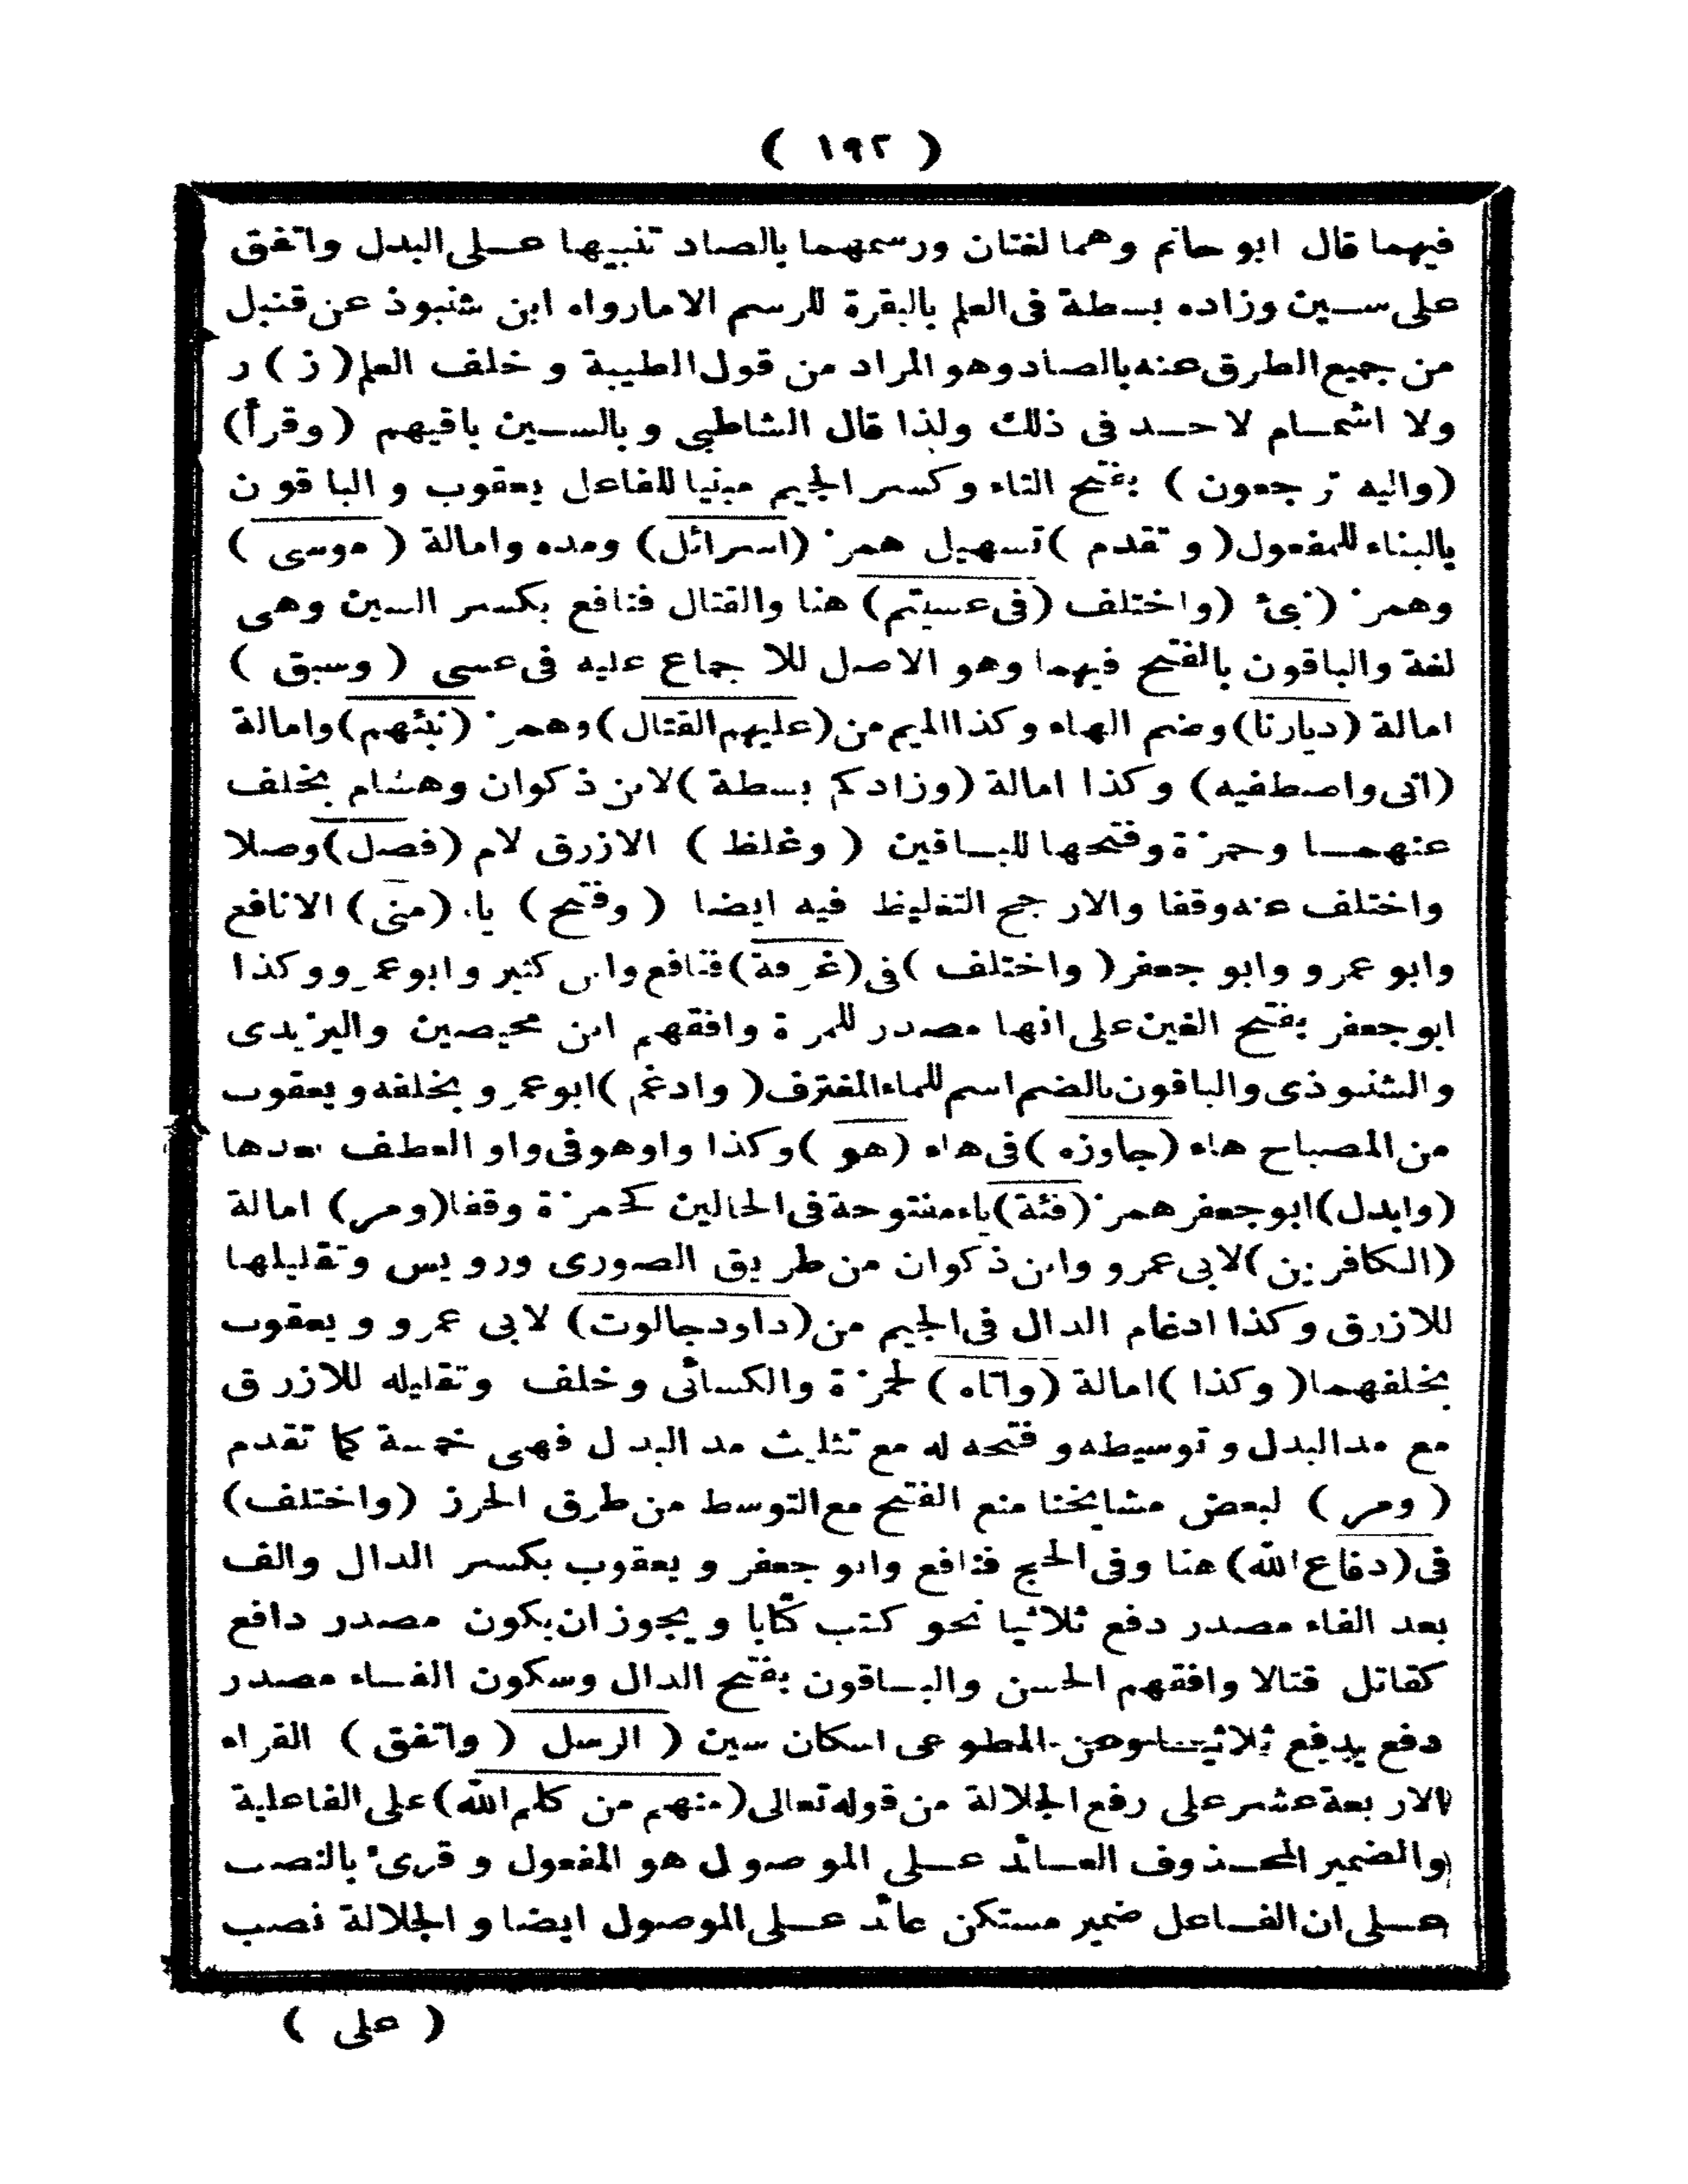 ( ١٩٢ )
فيهما قال ابو حاتم وهما لغتان ورسمهما بالصاد تنبيها عـلى البدل واتفق
على سـين وزاده بسطة فى العلم بالبقرة للرسم الا مارواه ابن شنبوذ عن قنبل
من جميع الطرق عنه بالصاد وهو المراد من قول الطيبة و خلف العلم (ز) ر
ولا اشمـام لاحـد فى ذلك ولذا قال الشاطبى و بالسـين باقيهم (وقرأ)
(واليه ترجعون) بفتح التاء وكسر الجيم مبنيا للفاعل يعقوب و الباقون
بالبناء للمفعول (و تقدم) تسهيل همز (اسرائل) ومده وامالة (موسى)
وهمز (نبئ (واختلف (فى عسيتم) هنا والقتال فنافع بكسر السين وهى
لغة والباقون بالفتح فيهما وهو الاصل للا جماع عليه فى عسى (وسبق)
امالة (ديارنا) وضم الهاء وكذا الميم من (عليهم القتال) وهمز (نبئهم) وامالة
(انى واصطفيه) وكذا امالة (وزادكم بسطة) لابن ذكوان وهشام بخلف
عنهمـا وحمزة وفتحها للبـاقين (وغلظ) الازرق لام (فصل) وصلا
واختلف عنه وقفا والارجح التغليظ فيه ايضا (وفتح) ياء (منى) الا نافع
وابو عمرو وابو جعفر (واختلف) فى (غرفة) فنافع وابن كثير وابوعمرو وكذا
ابو جعفر بفتح الغين على انها مصدر للمرة وافقهم ابن محيصين واليزيدى
والشنبوذى والباقون بالضم اسم للماء المغترف (وادغم) ابوعمرو بخلفه و يعقوب
من المصباح هاء (جاوزه) فى هاء (هو) وكذا واو هو فى واو العطف بعدها
(وابدل) ابو جعفر همز (فئة) ياء مفتوحة فى الحالين كحمزة وقفا (ومر) امالة
(الكافرين) لابى عمرو وابن ذكوان من طريق الصورى ورويس وتقليلها
للازرق وكذا ادغام الدال فى الجيم من (داود جالوت) لابى عمرو و يعقوب
بخلفهما (وكذا) امالة (واتاه) لحمزة والكسائى وخلف وتقليله للازرق
مع مد البدل و توسيطه و فتحه له مع تثليث مد البدل فهى خمسة كما تقدم
(ومر) لبعض مشايخنا منع الفتح مع التوسط من طرق الحرز (واختلف)
فى (دفاع الله) هنا وفى الحج فنافع وابو جعفر و يعقوب بكسر الدال والف
بعد الفاء مصدر دفع ثلاثيا نحو كتب كتابا و يجوز ان يكون مصدر دافع
كقاتل قتالا وافقهم الحسن والبـاقون بفتح الدال وسكون الفـاء مصدر
دفع يدفع ثلاثيـا وعن المطوعى اسكان سين (الرسل (واتفق) القراء
الاربعة عشر على رفع الجلالة من قوله تعالى (منهم من كلم الله) على الفاعلية
والضمير المحـذوف العـائد عـلى الموصول هو المفعول و قرىء بالنصب
عـلى ان الفـاعل ضمير مستكن عائد عـلى الموصول ايضا و الجلالة نصب
( على )